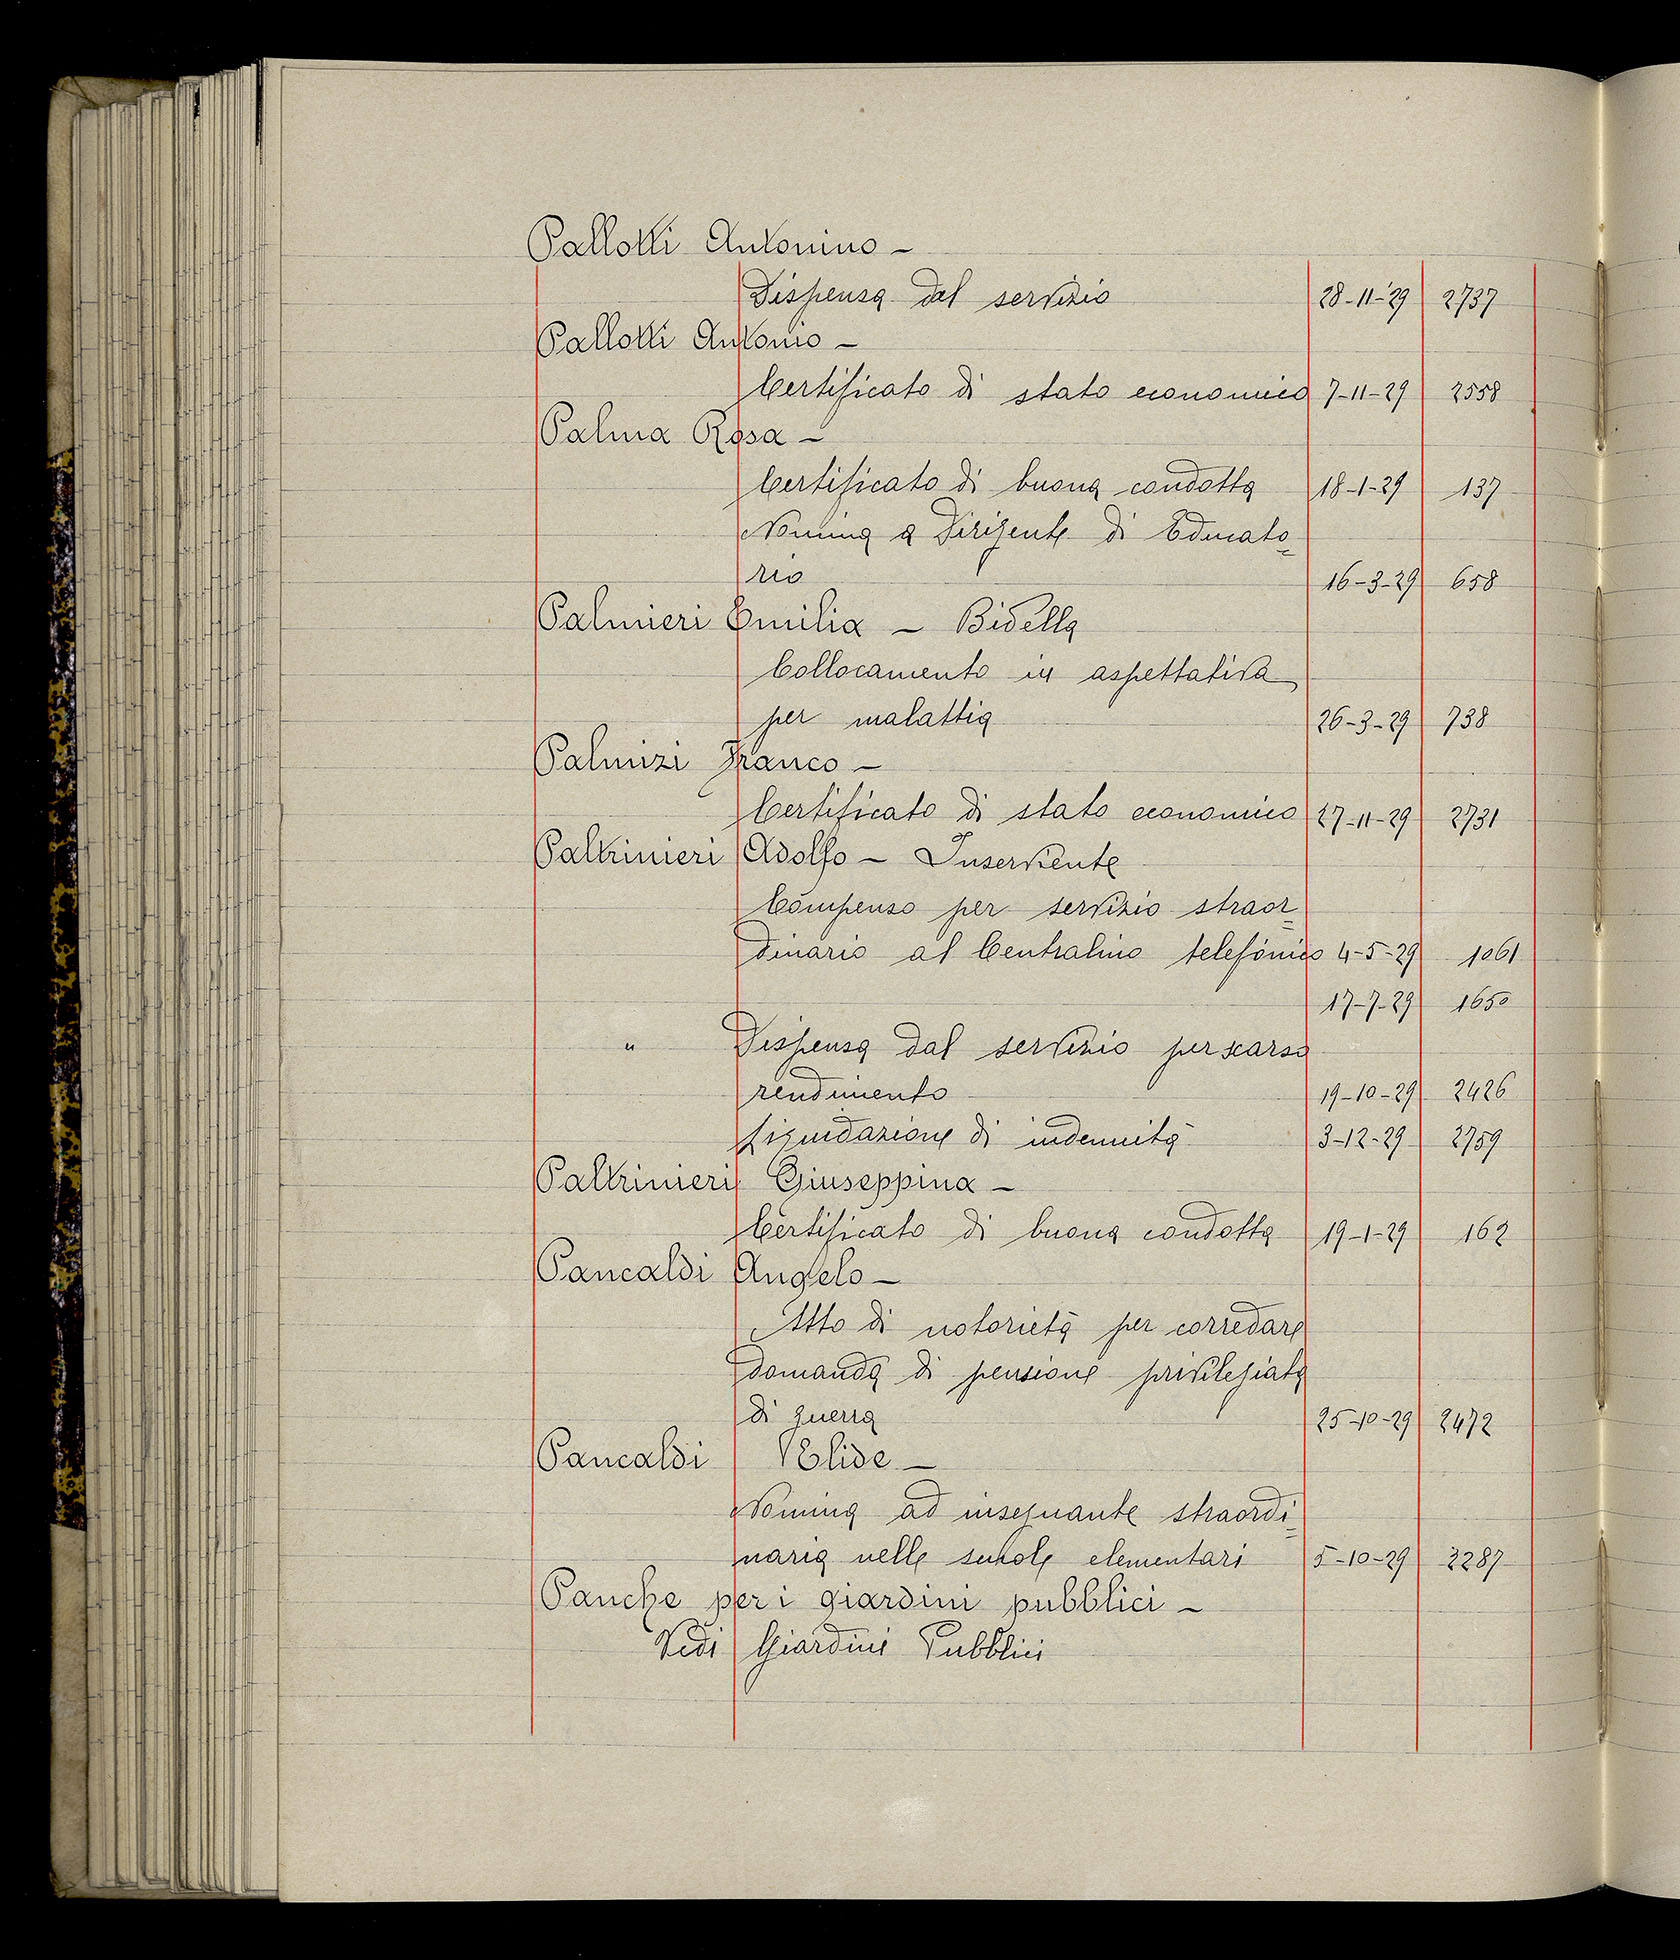 Pallotti Antonino –
Dispensa dal servizio 28-11-29 2737
Pallotti Antonio –
Certificato di stato economico 7-11-29 2558
Palma Rosa –
Certificato di buona condotta 18-1-29 137
Nomina a Dirigente di Educato=
rio 16-3-29 658
Palmieri Emilia – Bidella
Collocamento in aspettativa
per malattia 26-3-29 738
Palmizi Franco –
Certificato di stato economico 27-11-29 2731
Paltrinieri Adolfo – Inserviente
Compenso per servizio straor=
dinario al Centralino telefonico 4-5-29 1061
17-7-29 1650
" Dispensa dal servizio per scarso
rendimento 19-10-29 2426
Liquidazione di indennità 3-12-29 2759
Paltrinieri Giuseppina –
Certificato di buona condotta 19-1-29 162
Pancaldi Angelo –
Atto di notorietà per corredare
domanda di pensione privilegiata
di guerra 25-10-29 2472
Pancaldi Elide –
Nomina ad insegnante straordi=
naria nelle scuole elementari 5-10-29 2287
Panche per i giardini pubblici –
Vedi Giardini Pubblici